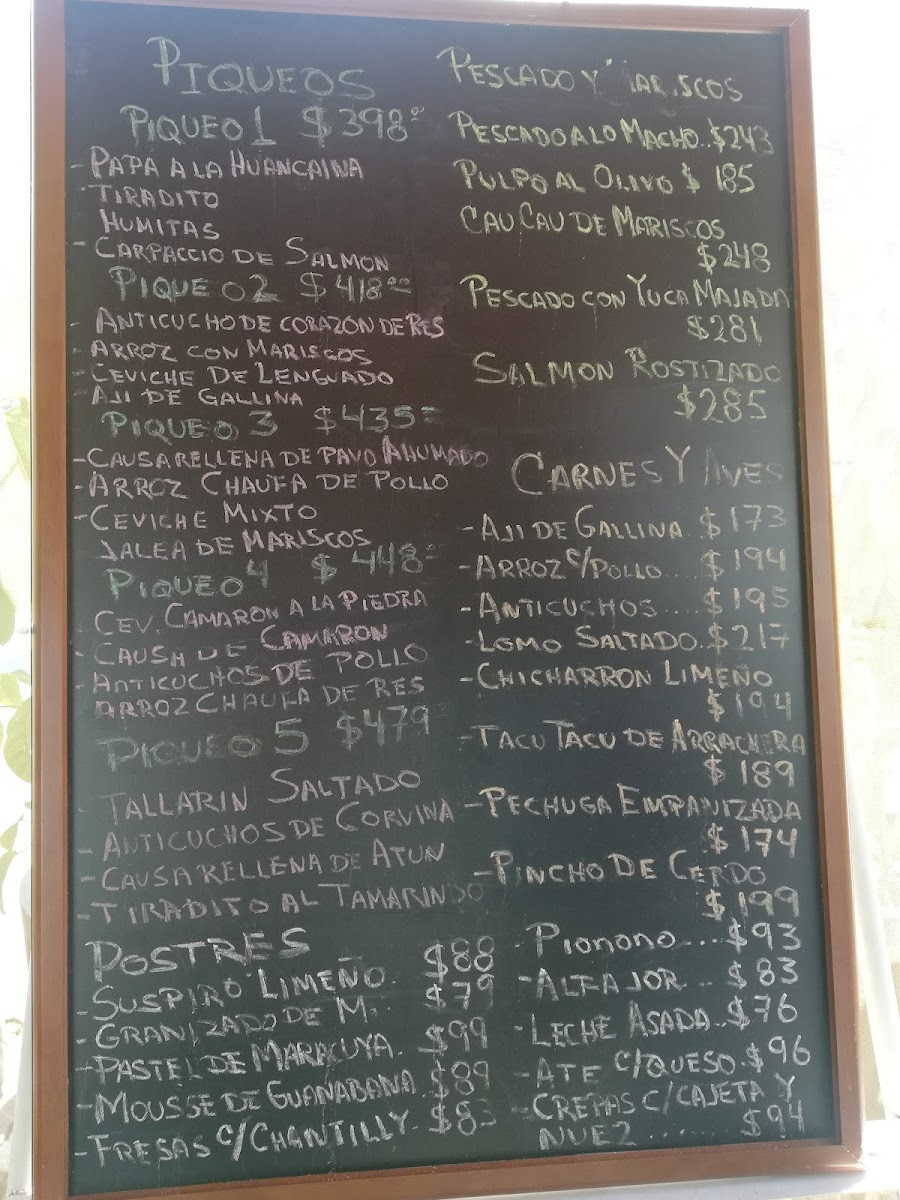 PIQUEOS
PIQUEO 1 $398.00
- PAPA A LA HUANCAINA
- TIRADITO
HUMITAS
- CARPACCIO DE SALMON
PIQUEO 2 $418.00
- ANTICUCHO DE CORAZON DE RES
- ARROZ CON MARISCOS
- CEVICHE DE LENGUADO
- AJI DE GALLINA
PIQUEO 3 $435
- CAUSA RELLENA DE PAVO AHUMADO
- ARROZ CHAUFA DE POLLO
- CEVICHE MIXTO
JALEA DE MARISCOS
PIQUEO 4 $448
CEV. CAMARON A LA PIEDRA
- CAUSA DE CAMARON
- ANTICUCHOS DE POLLO
ARROZ CHAUFA DE RES
PIQUEO 5 $479
- TALLARIN SALTADO
- ANTICUCHOS DE CORVINA
- CAUSA RELLENA DE ATUN
- TIRADITO AL TAMARINDO
POSTRES
- SUSPIRO LIMEÑO. $88
- GRANIZADO DE M.. $79
- PASTEL DE MARACUYA. $99
- MOUSSE DE GUANABANA. $89
- FRESAS C/CHANTILLY. $83
PESCADO Y MARISCOS
PESCADO A LO MACHO.. $243
PULPO AL OLIVO $ 185
CAU CAU DE MARISCOS
$248
PESCADO CON YUCA MAJADA
$281
SALMON ROSTIZADO
$285
CARNES Y AVES
- AJI DE GALLINA. $173
- ARROZ C/POLLO.... $ 194
- ANTICUCHOS.... $195
- LOMO SALTADO.. $217
- CHICHARRON LIMEÑO
$194
- TACU TACU DE ARRACHERA
$ 189
- PECHUGA EMPANIZADA
$ 174
- PINCHO DE CERDO
$199
- PIONONO... $93
- ALFAJOR... $83
- LECHE ASADA.. $76
- ATE C/QUESO. $96
- CREPAS C/CAJETA Y
NUEZ ...... $94